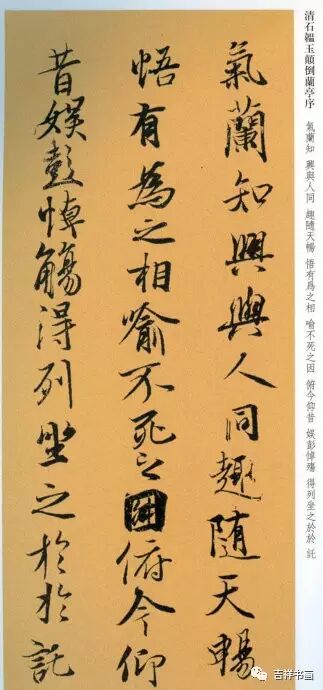 清石韞玉顛倒蘭亭序
氣蘭知 興與人同 趣隨天暢 悟有爲之相 喻不死之因 俯今仰昔 娛彭悼殤 得列坐之於於 託
氣蘭知興與人同趣隨天暢
悟有為之相喻不死之因俯今仰
昔娛彭悼觴得列坐之於於託
吉祥书画